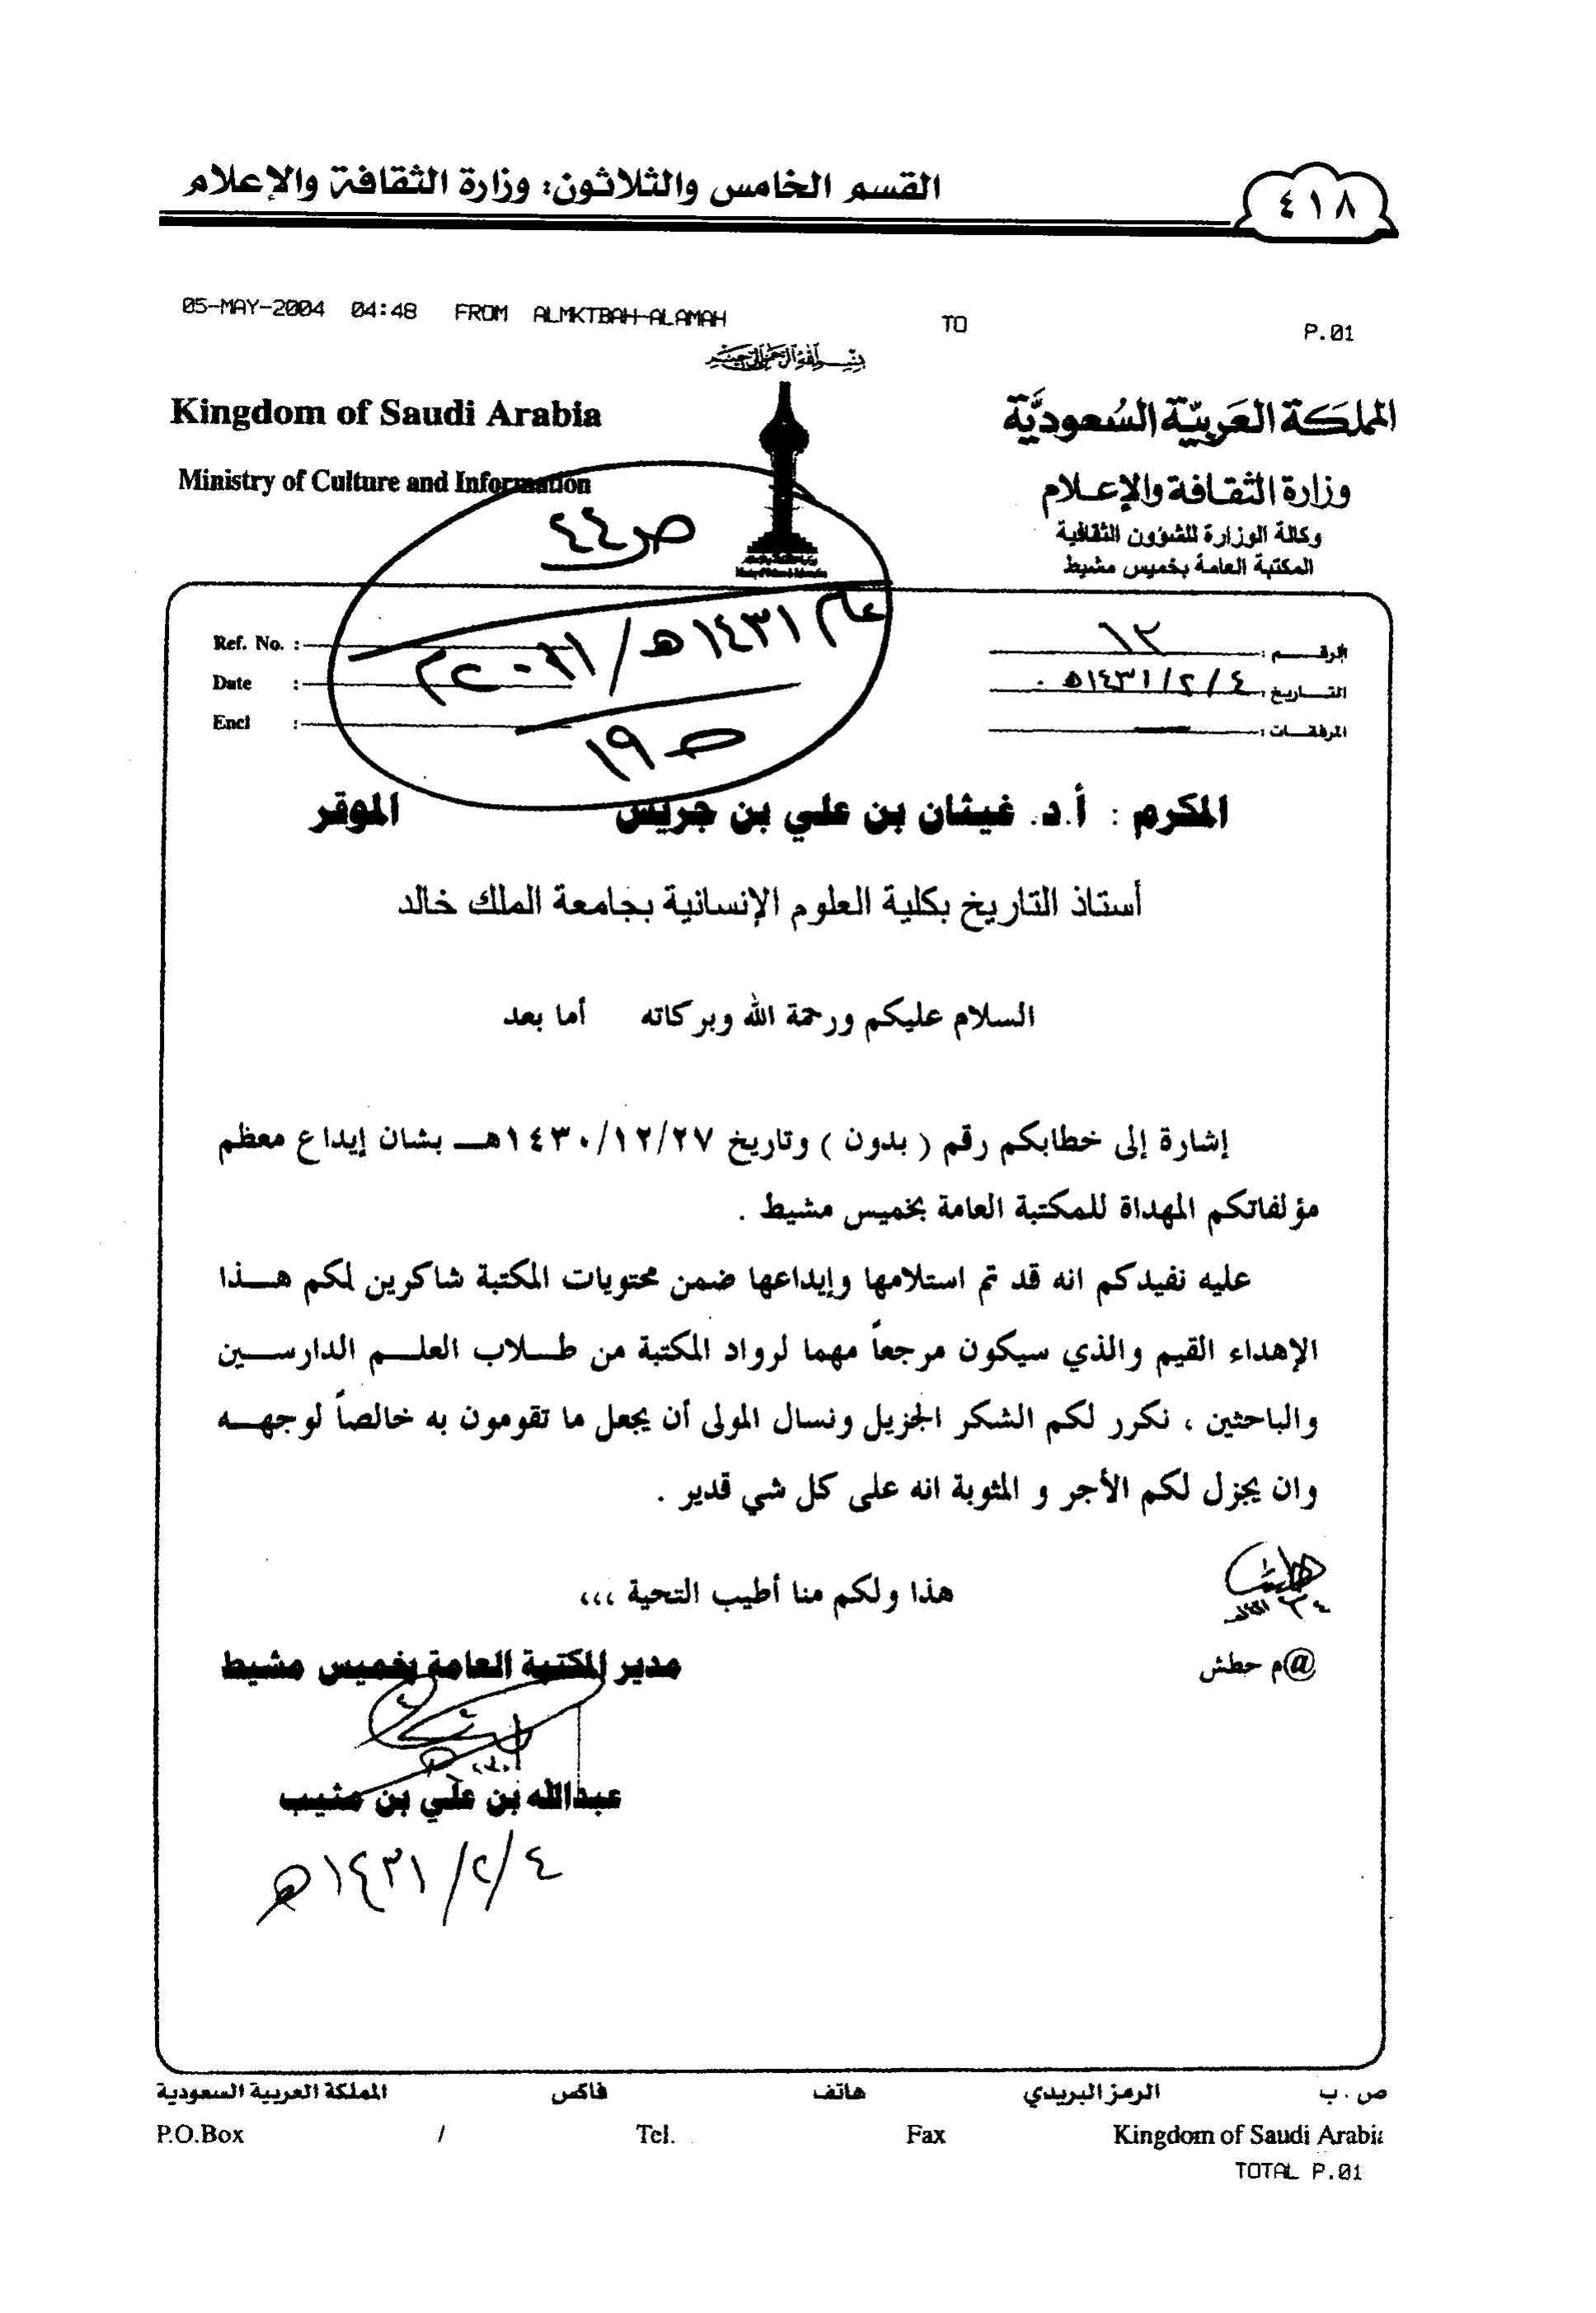 القسم الخامس والثلاثون: وزارة الثقافة والإعلام
٤١٨
05-MAY-2004 04:48 FROM ALMKTBAH-ALAMAH TO P.01
بسم الله الرحمن الرحيم
Kingdom of Saudi Arabia
Ministry of Culture and Information
المملكة العربية السعودية
وزارة الثقافة والإعلام
وكالة الوزارة للشؤون الثقافية
المكتبة العامة بخميس مشيط
ص ٤٤
عام ١٤٣١هـ / ٢٠١١م
ص ١٩
Ref. No. :
Date :
Encl :
الرقم : ١٣
التاريخ : ٤ / ٢ / ١٤٣١هـ .
المرفقات :
المكرم : أ.د. غيثان بن علي بن جريس الموقر
أستاذ التاريخ بكلية العلوم الإنسانية بجامعة الملك خالد
السلام عليكم ورحمة الله وبركاته أما بعد
إشارة إلى خطابكم رقم ( بدون ) وتاريخ ١٤٣٠/١٢/٢٧هـ بشان إيداع معظم
مؤلفاتكم المهداة للمكتبة العامة بخميس مشيط .
عليه نفيدكم انه قد تم استلامها وإيداعها ضمن محتويات المكتبة شاكرين لكم هذا
الإهداء القيم والذي سيكون مرجعاً مهما لرواد المكتبة من طلاب العلم الدارسين
والباحثين ، نكرر لكم الشكر الجزيل ونسال المولى أن يجعل ما تقومون به خالصاً لوجهه
وان يجزل لكم الأجر و المثوبة انه على كل شي قدير .
هذا ولكم منا أطيب التحية ،،،
مدير المكتبة العامة بخميس مشيط
@م حطش
عبدالله بن علي بن مثيب
٤ / ٢ / ١٤٣١هـ
ص . ب الرمز البريدي هاتف فاكس المملكة العربية السعودية
P.O.Box / Tel. Fax Kingdom of Saudi Arabia
TOTAL P.01